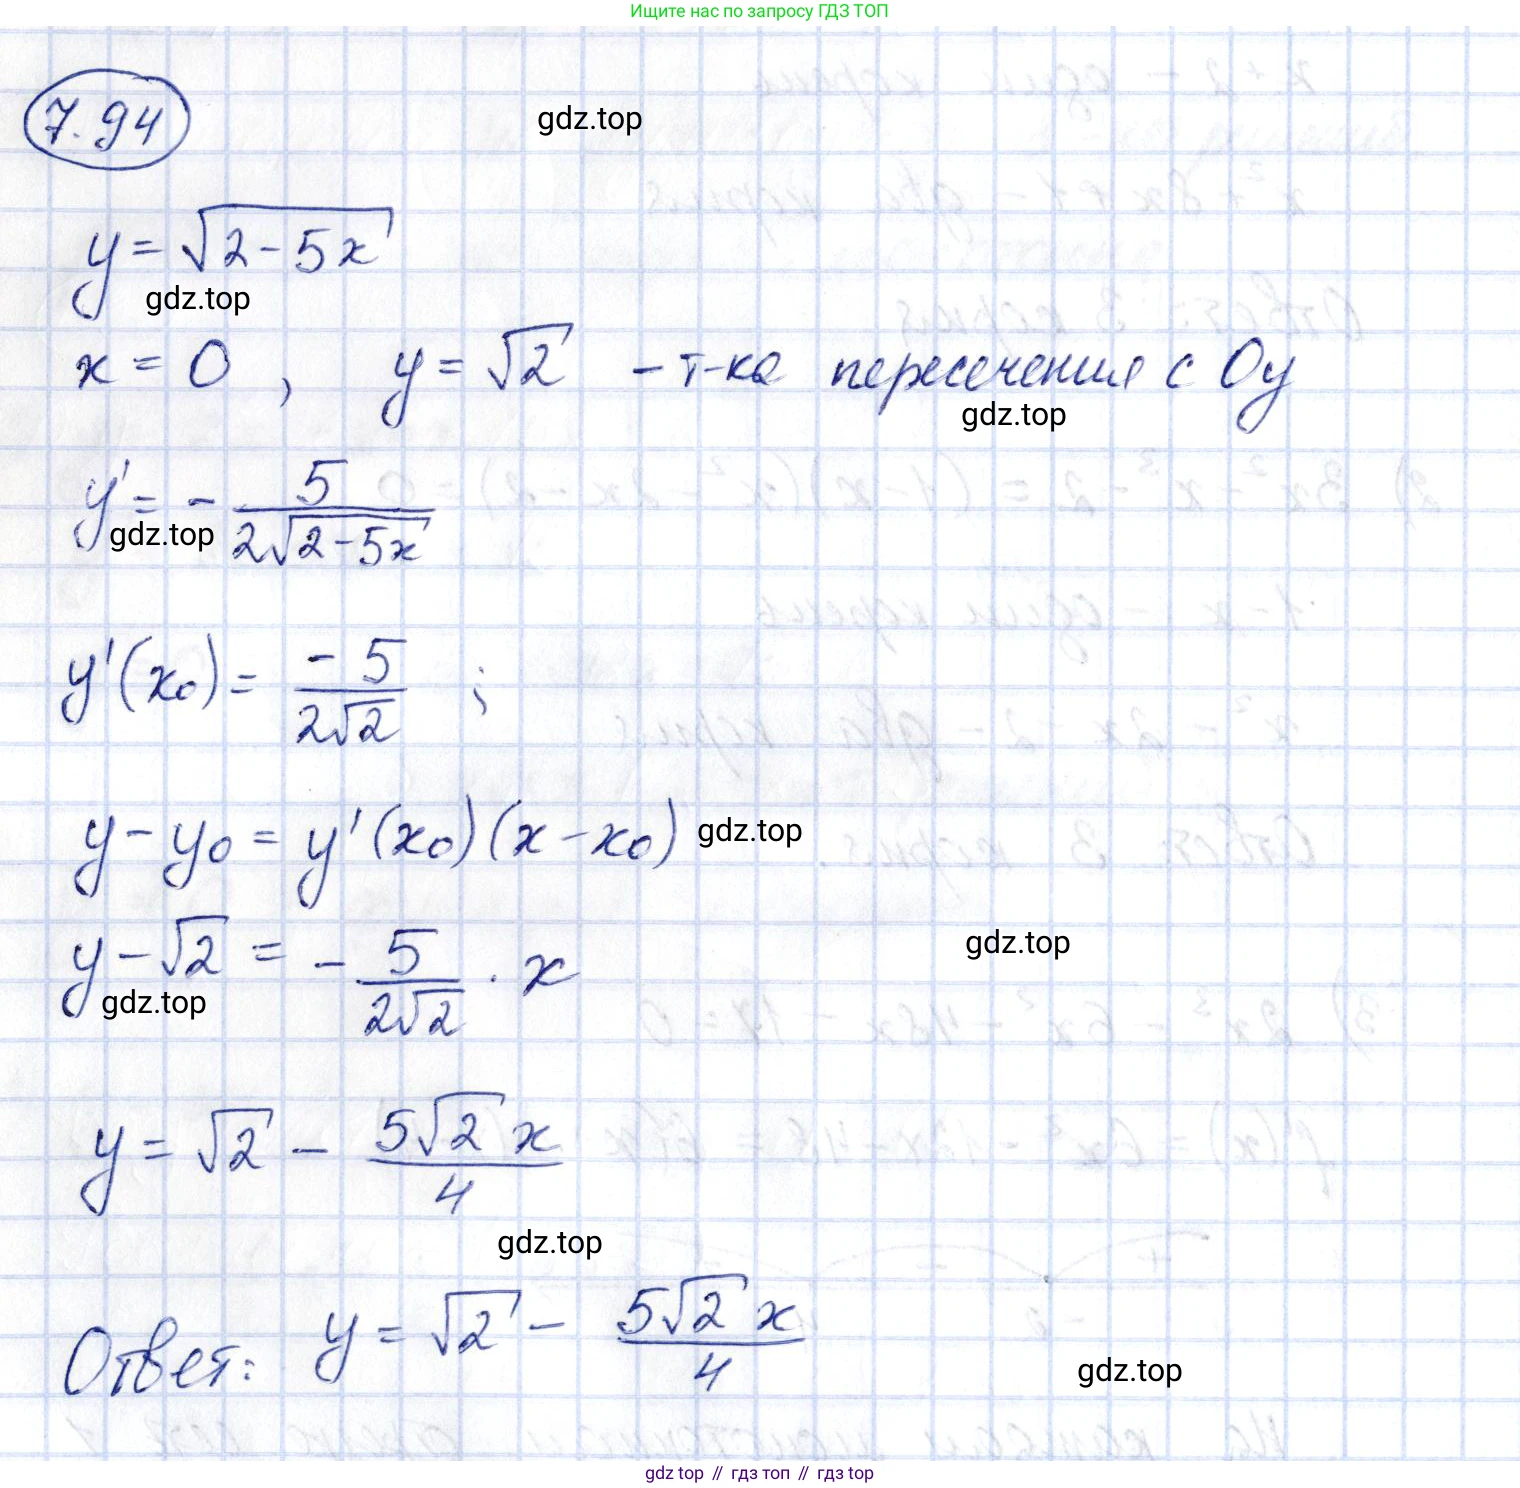 Ищите нас по запросу ГДЗ ТОП
7.94
gdz.top
y = √(2 - 5x)
gdz.top
x = 0 , y = √2 - т-ка пересечения с Oy
gdz.top
y' = - 5/(2√(2-5x))
gdz.top
y'(x₀) = -5/(2√2) ;
y - y₀ = y'(x₀)(x - x₀)
gdz.top
y - √2 = - 5/(2√2) · x
gdz.top
gdz.top
y = √2 - 5√2 x/4
gdz.top
Ответ: y = √2 - 5√2 x/4
gdz.top
gdz top // гдз топ // гдз top